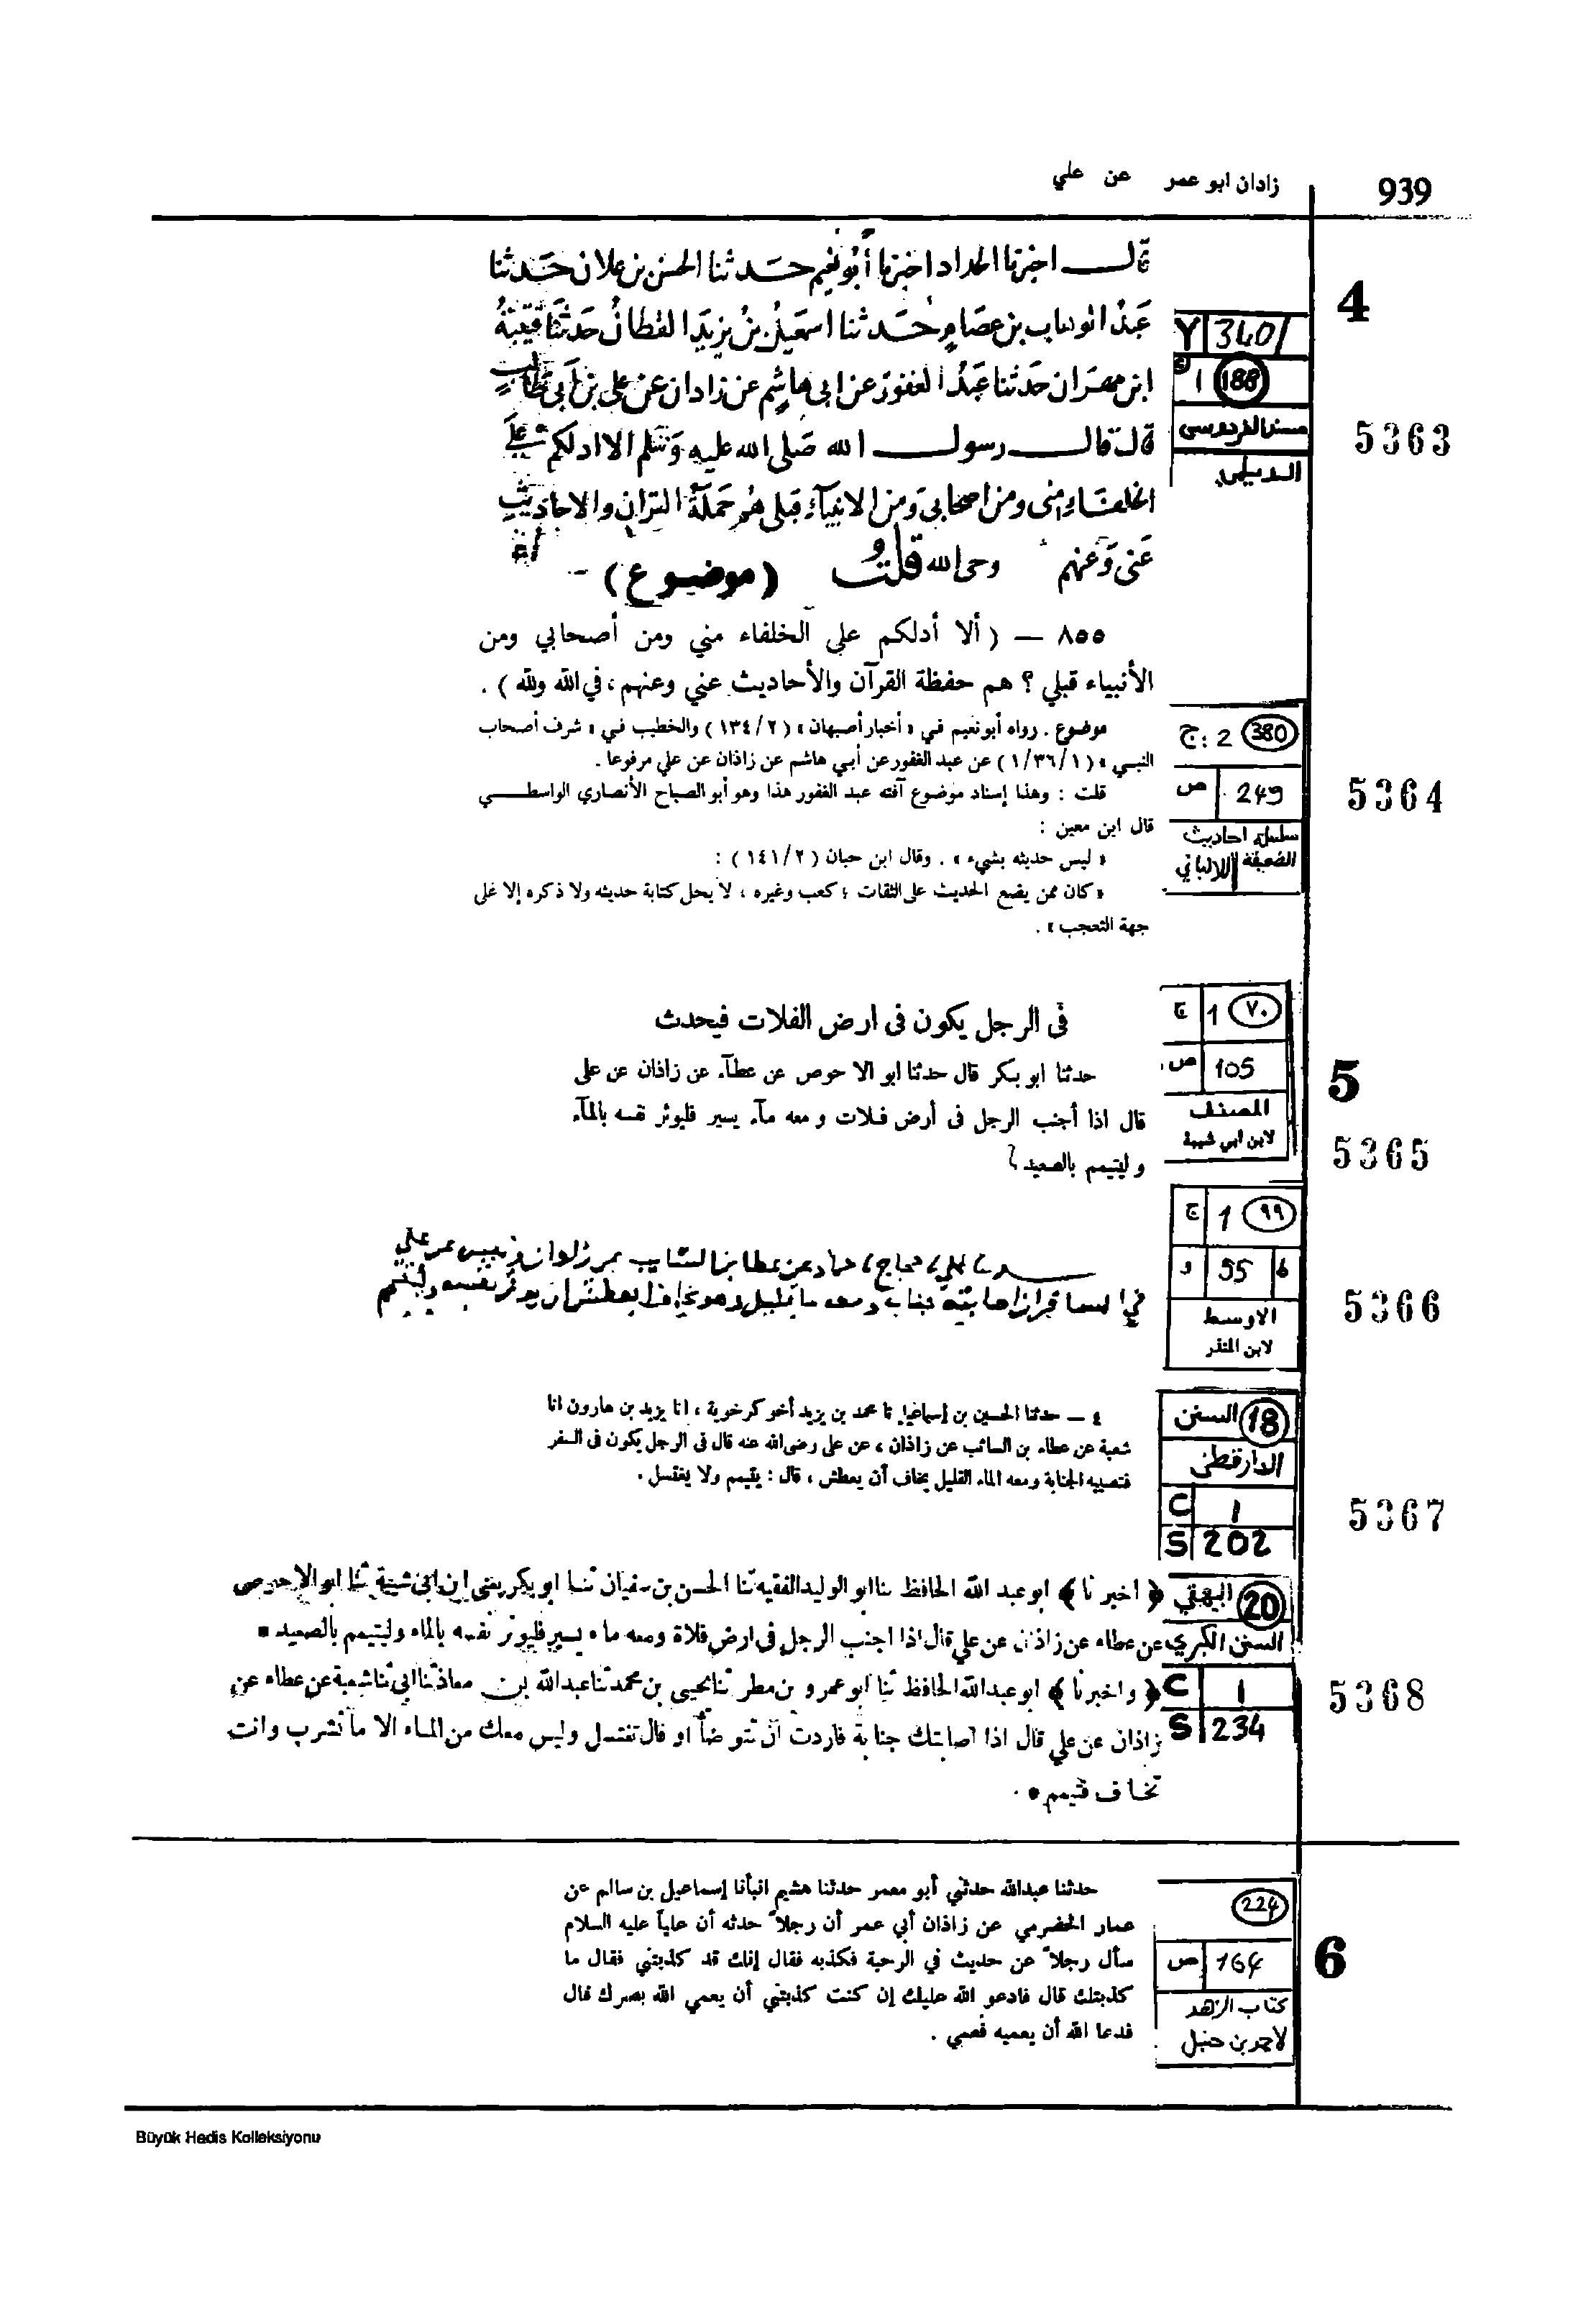 939
زادان ابو عمر عن علي
4
قالـــ اخبرنا الحداد اخبرنا أبو نعيم حـدثنا الحسن بن علان حَدثنا
عَبدُ الوهاب بن عصَامٍ حَدثنا اسمَعيلُ بنُ يزيدَ القطانُ حَدثنا قتيبَةُ
ابن مهرَان حَدثنا عَبدُ الغفور عن ابى هاشم عن زادان عن على بن أبى طَالب
قالَ قالَ رسولـــ الله صَلى الله عليه وَسَلم الا ادلكم على
الخلفَاءِ منى ومن اصحابى وَمن الانبيَآءِ قبلى هُم حَمَلَة القرآن والاحاديث
عَنى وَعنهم
قلت (موضوع)
Y 340
1 188
مسند الفردوسى
الديلمى
5363
٨٥٥ — ( ألا أدلكم على الخلفاء مني ومن أصحابي ومن
الأنبياء قبلي ؟ هم حفظة القرآن والأحاديث عني وعنهم ، في الله ولله ) .
موضوع . رواه أبو نعيم في « أخبار أصبهان » ( ٢/ ١٣٤ ) والخطيب في « شرف أصحاب
النبي » ( ١/٣٦/١ ) عن عبد الغفور عن أبي هاشم عن زاذان عن علي مرفوعا .
قلت : وهذا إسناد موضوع آفته عبد الغفور هذا وهو أبو الصباح الأنصاري الواسطي
قال ابن معين :
« ليس حديثه بشيء » . وقال ابن حبان ( ٢/ ١٤١ ) :
« كان ممن يضع الحديث على الثقات ؛ كعب وغيره ، لا يحل كتابة حديثه ولا ذكره إلا على
جهة التعجب » .
ج: 2 380
ص 249
سلسلة احاديث
الضعيفة للالباني
5364
فى الرجل يكون فى ارض الفلات فيحدث
حدثنا ابو بكر قال حدثنا ابو الاحوص عن عطآء عن زاذان عن على
قال اذا أجنب الرجل فى أرض فلات و معه مآء يسير فليوثر نفسه بالمآء
و ليتيمم بالصعيد
ج 1 ٧٠
ص 105
المصنف
لابن ابي شيبة
5
5365
حجاج حماد عن عطا بن السايب عن
ج 1 ٩٩
و 55 ط
الاوسط
لابن المنذر
5366
٤ – حدثنا الحسين بن إسماعيل نا محمد بن يزيد أخو كرخوية ، انا يزيد بن هارون انا
شعبة عن عطاء بن السائب عن زاذان ، عن على رضى الله عنه قال فى الرجل يكون فى السفر
فتصيبه الجنابة ومعه الماء القليل يخاف أن يعطش ، قال : يتيمم ولا يغتسل .
السنن 18
الدارقطنى
C 1
S 202
5367
﴿ اخبرنا ﴾ ابو عبد الله الحافظ ثنا ابو الوليد الفقيه ثنا الحسن بن سفيان ثنا ابو بكر يعنى ابن ابى شيبة ثنا ابو الاحوص
عن عطاء عن زاذان عن علي قال اذا اجنب الرجل فى ارض فلاة ومعه ماء يسير فليوثر نفسه بالماء وليتيمم بالصعيد •
﴿ واخبرنا ﴾ ابو عبد الله الحافظ ثنا ابو عمرو بن مطر ثنا يحيى بن محمد ثنا عبد الله بن معاذ ثنا ابي ثنا شعبة عن عطاء عن
زاذان عن علي قال اذا اصابتك جنابة فاردت ان تتوضأ او قال تغتسل وليس معك من الماء الا ما تشرب وانت
تخاف فتيمم •
البيهقي 20
السنن الكبري
C 1
S 234
5368
حدثنا عبدالله حدثني أبو معمر حدثنا هشيم انبأنا إسماعيل بن سالم عن
عمار الحضرمي عن زاذان أبي عمر أن رجلاً حدثه أن علياً عليه السلام
سأل رجلاً عن حديث في الرحبة فكذبه فقال إنك قد كذبتني فقال ما
كذبتك قال فادعو الله عليك إن كنت كذبتني أن يعمي الله بصرك قال
فدعا الله أن يعميه فعمي .
224
ص 164
كتاب الزهد
لاحمد بن حنبل
6
Büyük Hadis Kolleksiyonu